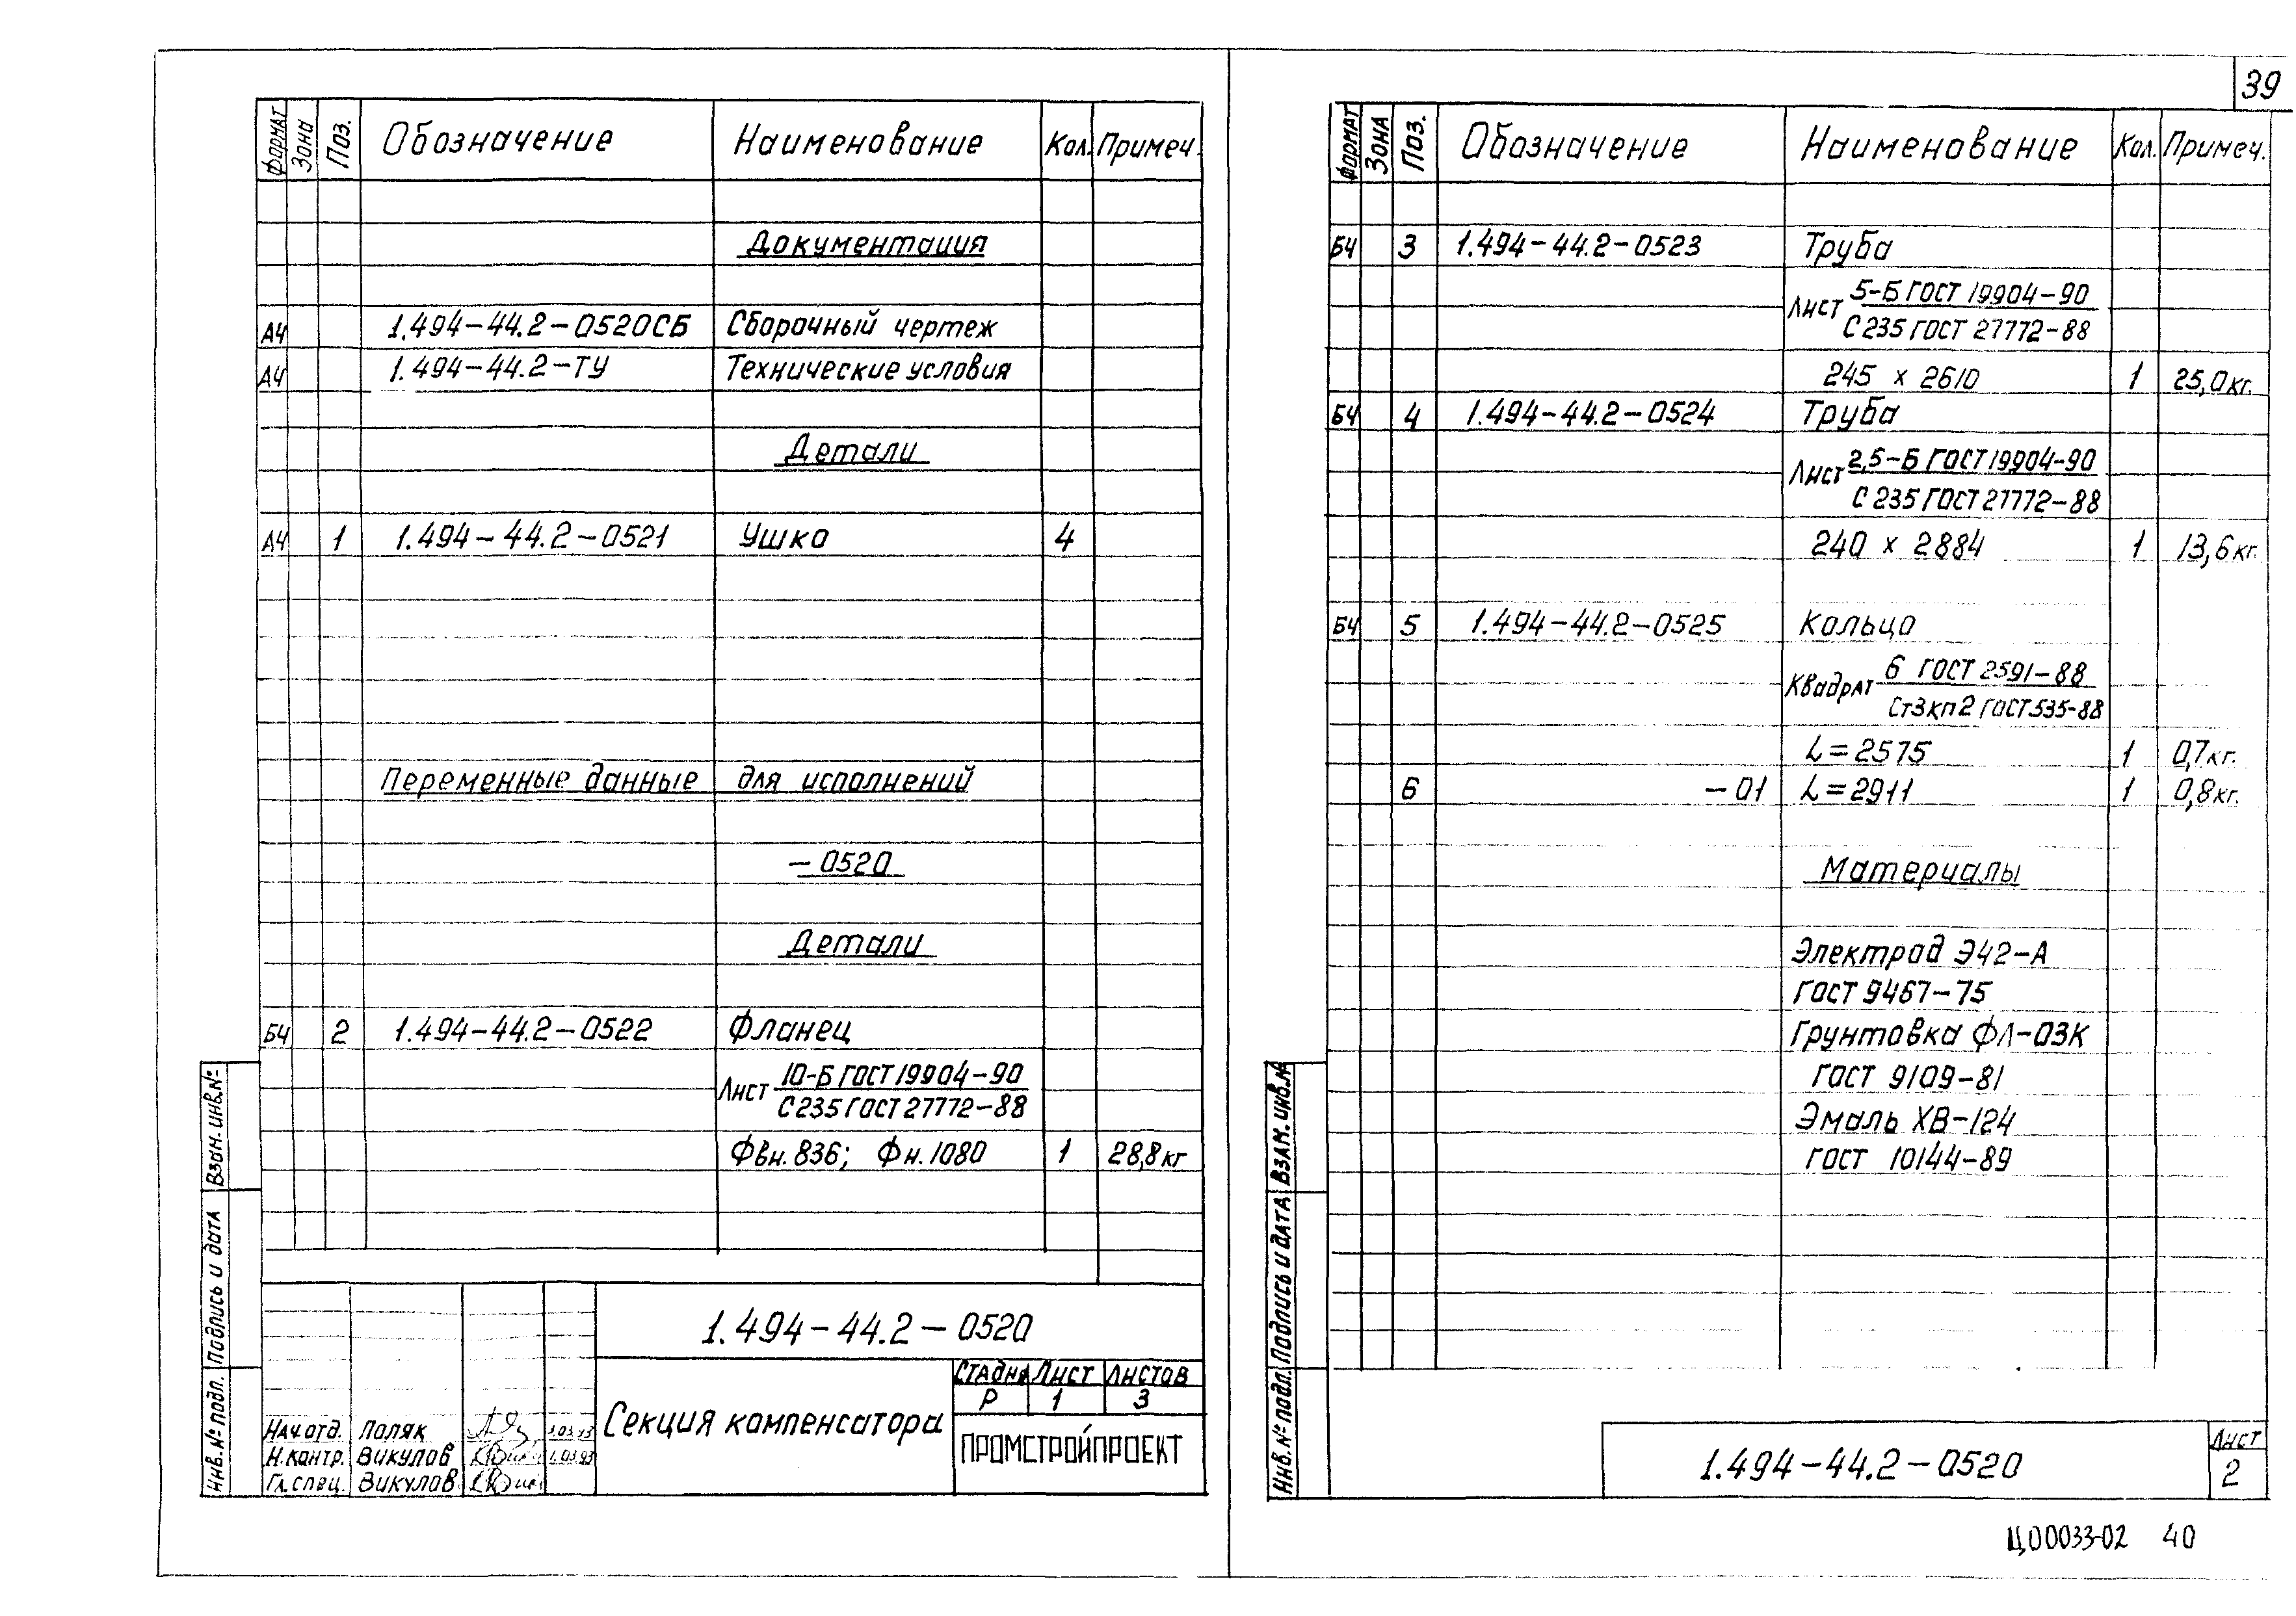 39
Формат Зона Поз. Обозначение Наименование Кол. Примеч.
Документация
А4 1.494-44.2-0520СБ Сборочный чертеж
А4 1.494-44.2-ТУ Технические условия
Детали
А4 1 1.494-44.2-0521 Ушко 4
Переменные данные для исполнений
-0520
Детали
Б4 2 1.494-44.2-0522 Фланец
Лист 10-Б ГОСТ 19904-90
С 235 ГОСТ 27772-88
Фвн. 836; Фн. 1080 1 28,8 кг
Взам. инв. №
Подпись и дата
Инв. № подл.
1.494-44.2-0520
Секция компенсатора
Стадия Лист Листов
Р 1 3
ПРОМСТРОЙПРОЕКТ
Нач. отд. Поляк
Н. контр. Викулов 1.03.93
Гл. спец. Викулов
Формат Зона Поз. Обозначение Наименование Кол. Примеч.
Б4 3 1.494-44.2-0523 Труба
Лист 5-Б ГОСТ 19904-90
С 235 ГОСТ 27772-88
245 х 2610 1 25,0 кг.
Б4 4 1.494-44.2-0524 Труба
Лист 2,5-Б ГОСТ 19904-90
С 235 ГОСТ 27772-88
240 х 2884 1 13,6 кг.
Б4 5 1.494-44.2-0525 Кольцо
Квадрат 6 ГОСТ 2591-88
Ст3кп2 ГОСТ 535-88
L=2575 1 0,7 кг.
6 -01 L=2911 1 0,8 кг.
Материалы
Электрод Э42-А
ГОСТ 9467-75
Грунтовка ФЛ-03К
ГОСТ 9109-81
Эмаль ХВ-124
ГОСТ 10144-89
Взам. инв. №
Подпись и дата
Инв. № подл.
1.494-44.2-0520
Лист
2
Ц00033-02 40